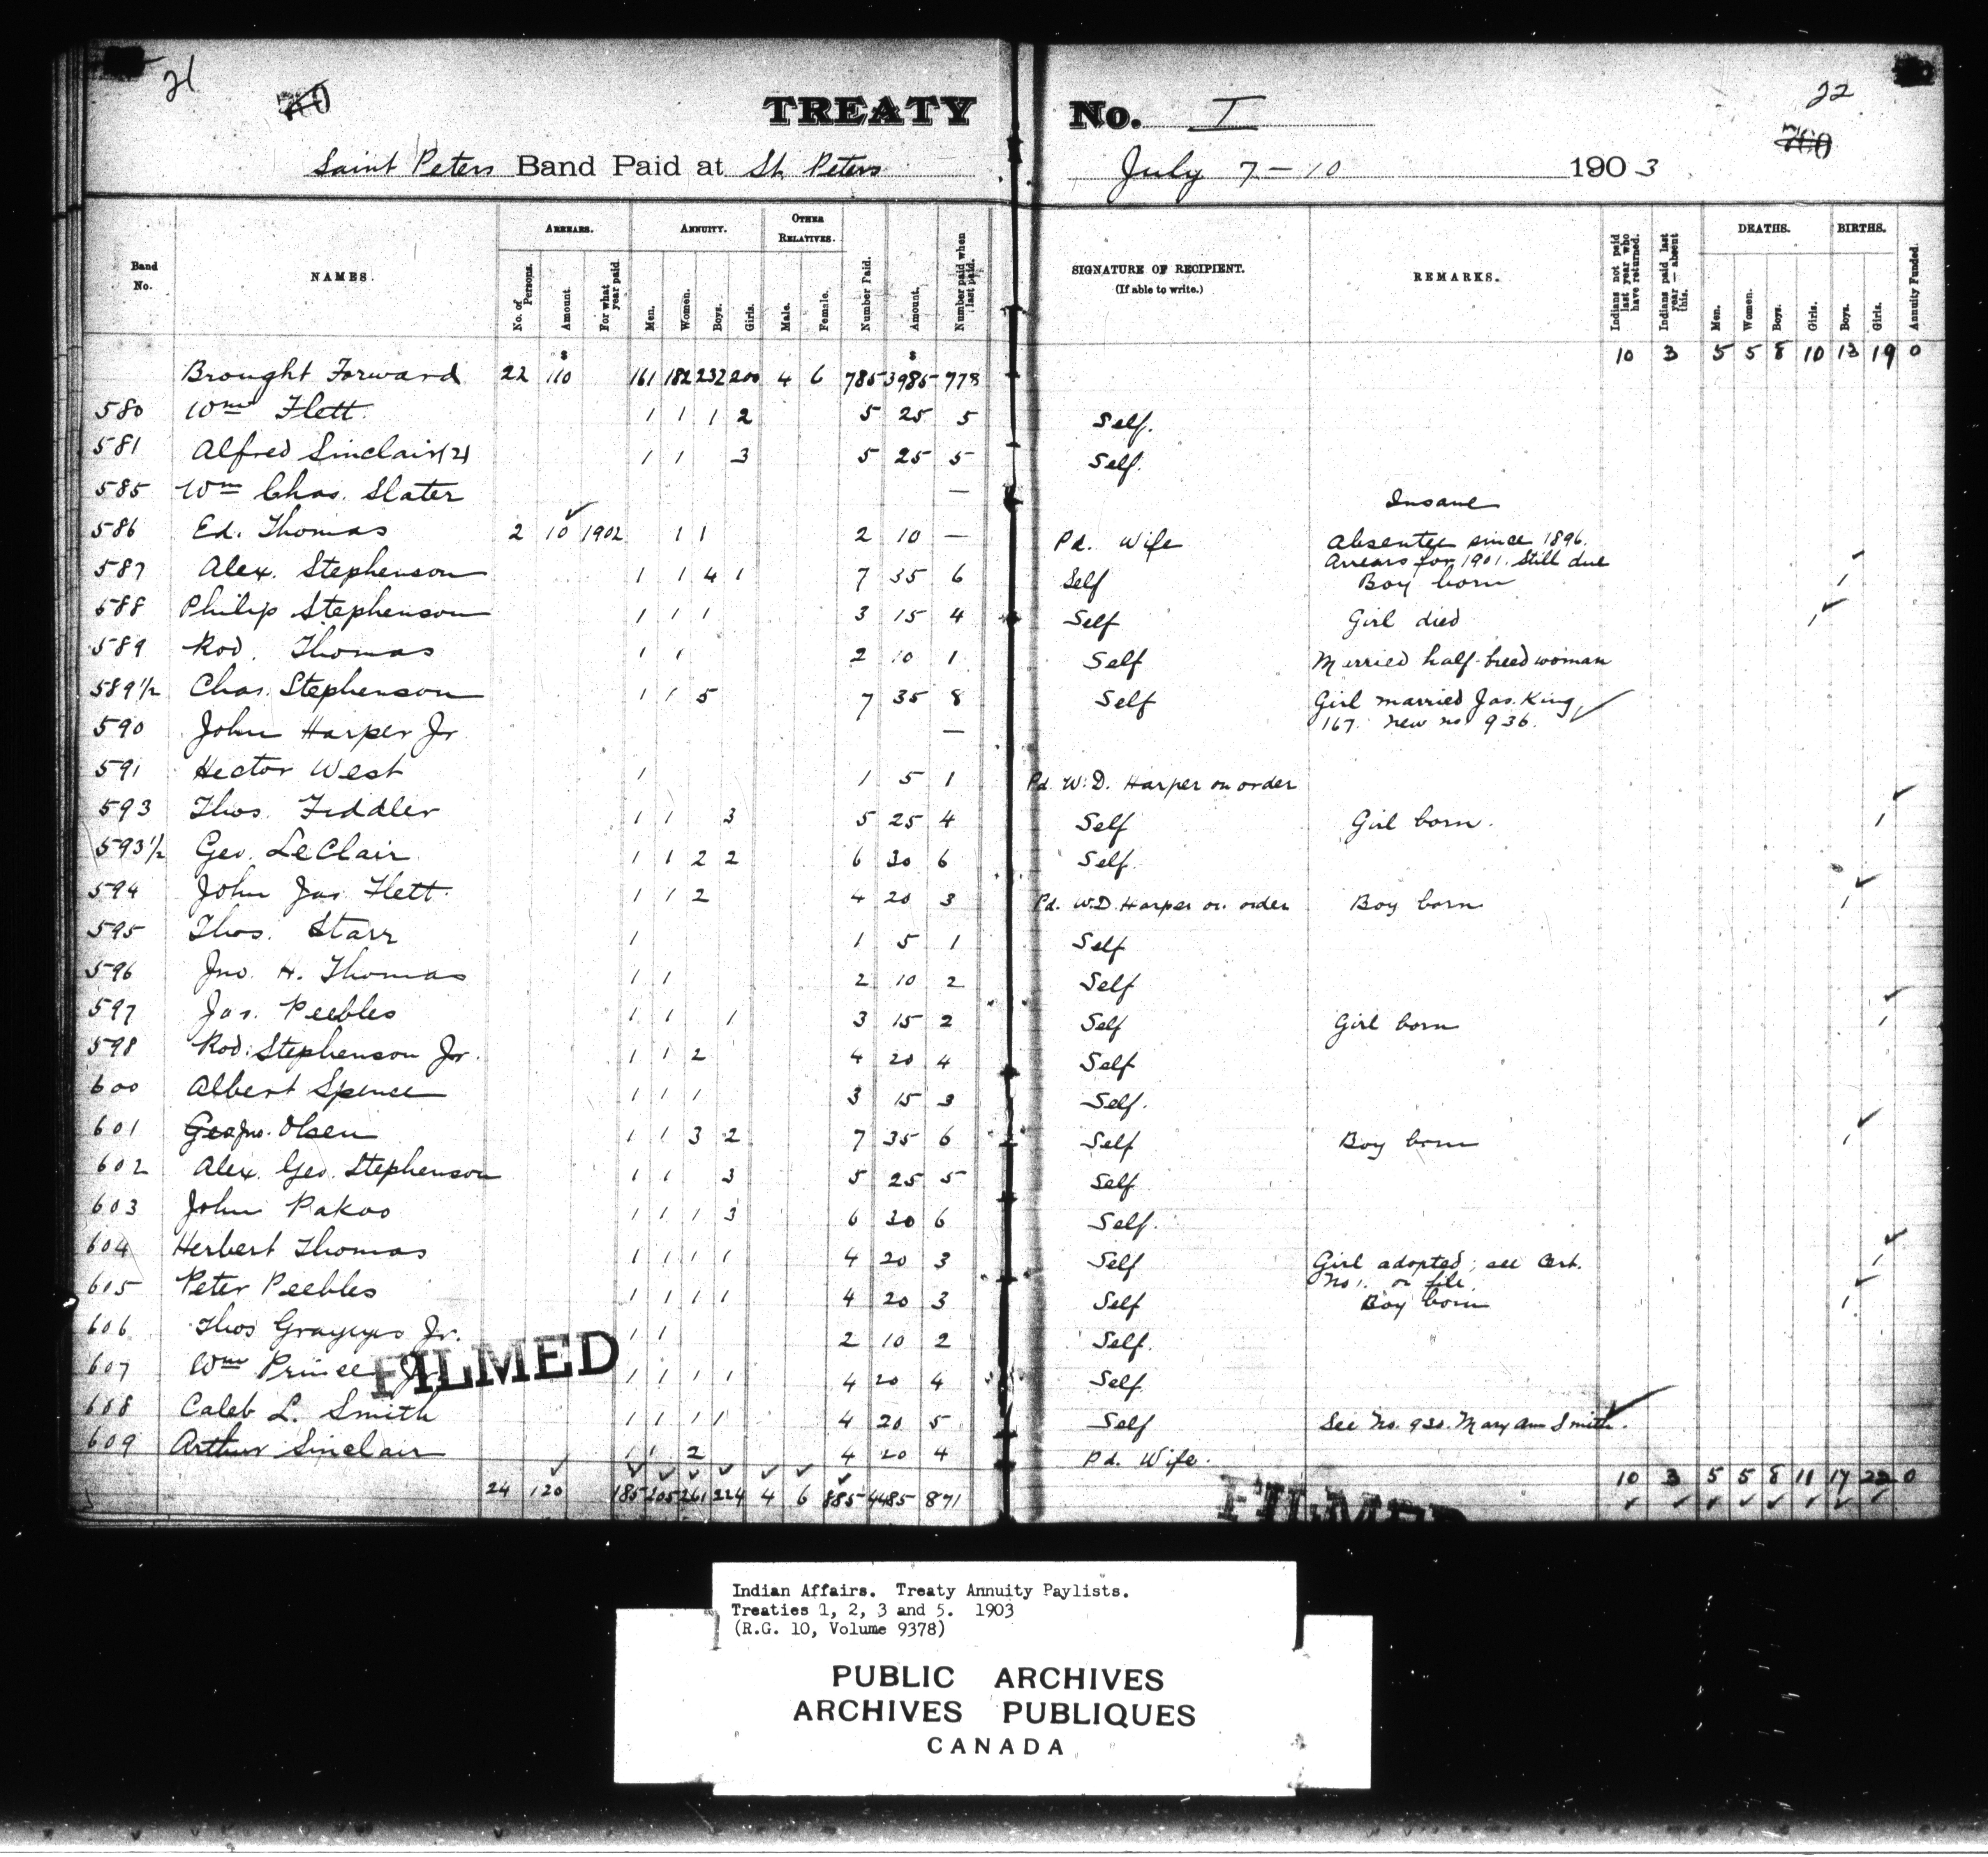 21
TREATY No. I
22
Saint Peters Band Paid at St. Peters July 7 - 10 1903
Band No. NAMES. ARREARS. ANNUITY. OTHER RELATIVES. Number Paid. Amount. Number paid when last paid. SIGNATURE OF RECIPIENT. (If able to write.) REMARKS. Indians not paid last year who have returned. Indians paid last year — absent this. DEATHS. BIRTHS. Annuity Funded.
No. of Persons. Amount. For what year paid. Men. Women. Boys. Girls. Male. Female. Men. Women. Boys. Girls. Boys. Girls.
$ $
Brought Forward 22 110 161 182 232 200 4 6 785 3985 778 10 3 5 5 8 10 13 19 0
580 Wm Flett 1 1 1 2 5 25 5 Self.
581 Alfred Sinclair (2) 1 1 3 5 25 5 Self.
585 Wm Chas. Slater — Insane
586 Ed. Thomas 2 10 1902 1 1 2 10 — Pd. Wife Absentee since 1896.
Arrears for 1901. Still due
587 Alex. Stephenson 1 1 4 1 7 35 6 Self Boy born 1
588 Philip Stephenson 1 1 1 3 15 4 Self Girl died 1
589 Rod. Thomas 1 1 2 10 1 Self Married half-breed woman
589½ Chas. Stephenson 1 1 5 7 35 8 Self Girl married Jas. King,
167. New no 936.
590 John Harper Jr —
591 Hector West 1 1 5 1 Pd. W.D. Harper on order
593 Thos. Fiddler 1 1 3 5 25 4 Self Girl born. 1
593½ Geo. LeClair 1 1 2 2 6 30 6 Self.
594 John Jas. Flett 1 1 2 4 20 3 Pd. W.D. Harper on order Boy born 1
595 Thos. Starr 1 1 5 1 Self
596 Jno. H. Thomas 1 1 2 10 2 Self
597 Jas. Peebles 1 1 1 3 15 2 Self Girl born 1
598 Rod. Stephenson Jr. 1 1 2 4 20 4 Self
600 Albert Spence 1 1 1 3 15 3 Self.
601 Geo Jno. Olsen 1 1 3 2 7 35 6 Self Boy born 1
602 Alex. Geo. Stephenson 1 1 3 5 25 5 Self
603 John Pakoo 1 1 1 3 6 30 6 Self.
604 Herbert Thomas 1 1 1 1 4 20 3 Self Girl adopted; see Cert. 1
No 1. on file
605 Peter Peebles 1 1 1 1 4 20 3 Self Boy born 1
606 Thos Jr. 1 1 2 10 2 Self.
607 Wm Prince Jr. 1 1 1 1 4 20 4 Self
FILMED
608 Caleb L. Smith 1 1 1 1 4 20 5 Self See No. 930. Mary Ann Smith.
609 Arthur Sinclair 1 1 2 4 20 4 Pd. Wife.
24 120 185 205 261 224 4 6 885 4485 871 10 3 5 5 8 11 17 22 0
FILMED
Indian Affairs. Treaty Annuity Paylists.
Treaties 1, 2, 3 and 5. 1903
(R.G. 10, Volume 9378)
PUBLIC ARCHIVES
ARCHIVES PUBLIQUES
CANADA